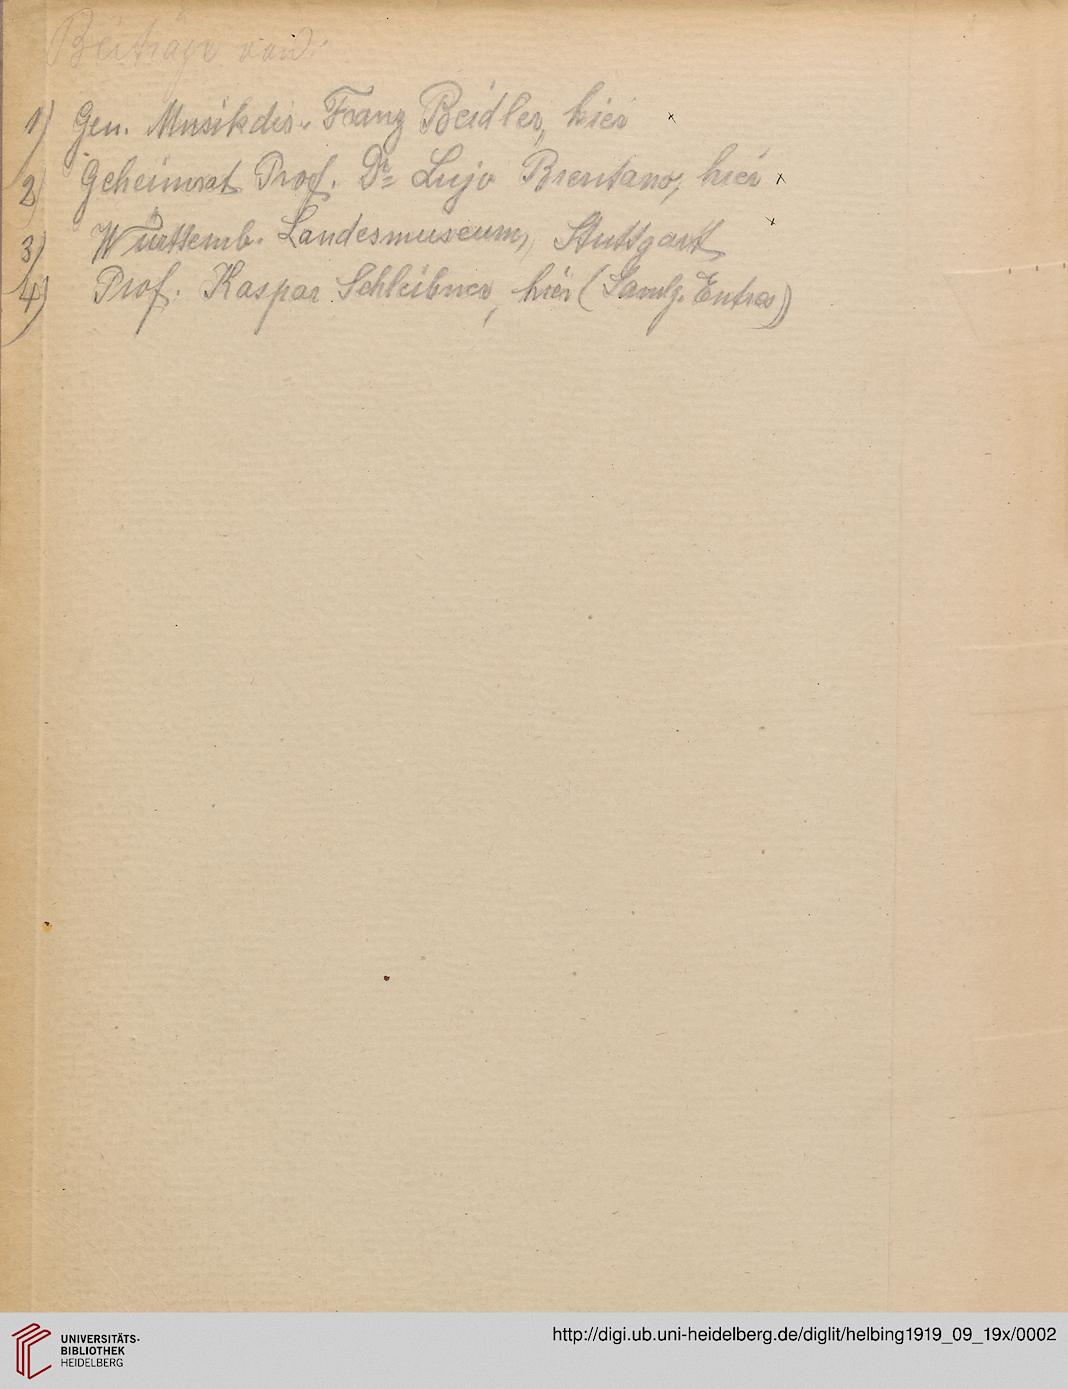 Beiträge von:
1) Gen. Musikdir. Franz Beidler, hier x
2) Geheimrat Prof. Dr Lujo Brentano, hier x
3) Württemb. Landesmuseum, Stuttgart x
4) Prof. Kaspar Schleibner, hier (Samlg. Entres)
UNIVERSITÄTS-
BIBLIOTHEK
HEIDELBERG
http://digi.ub.uni-heidelberg.de/diglit/helbing1919_09_19x/0002